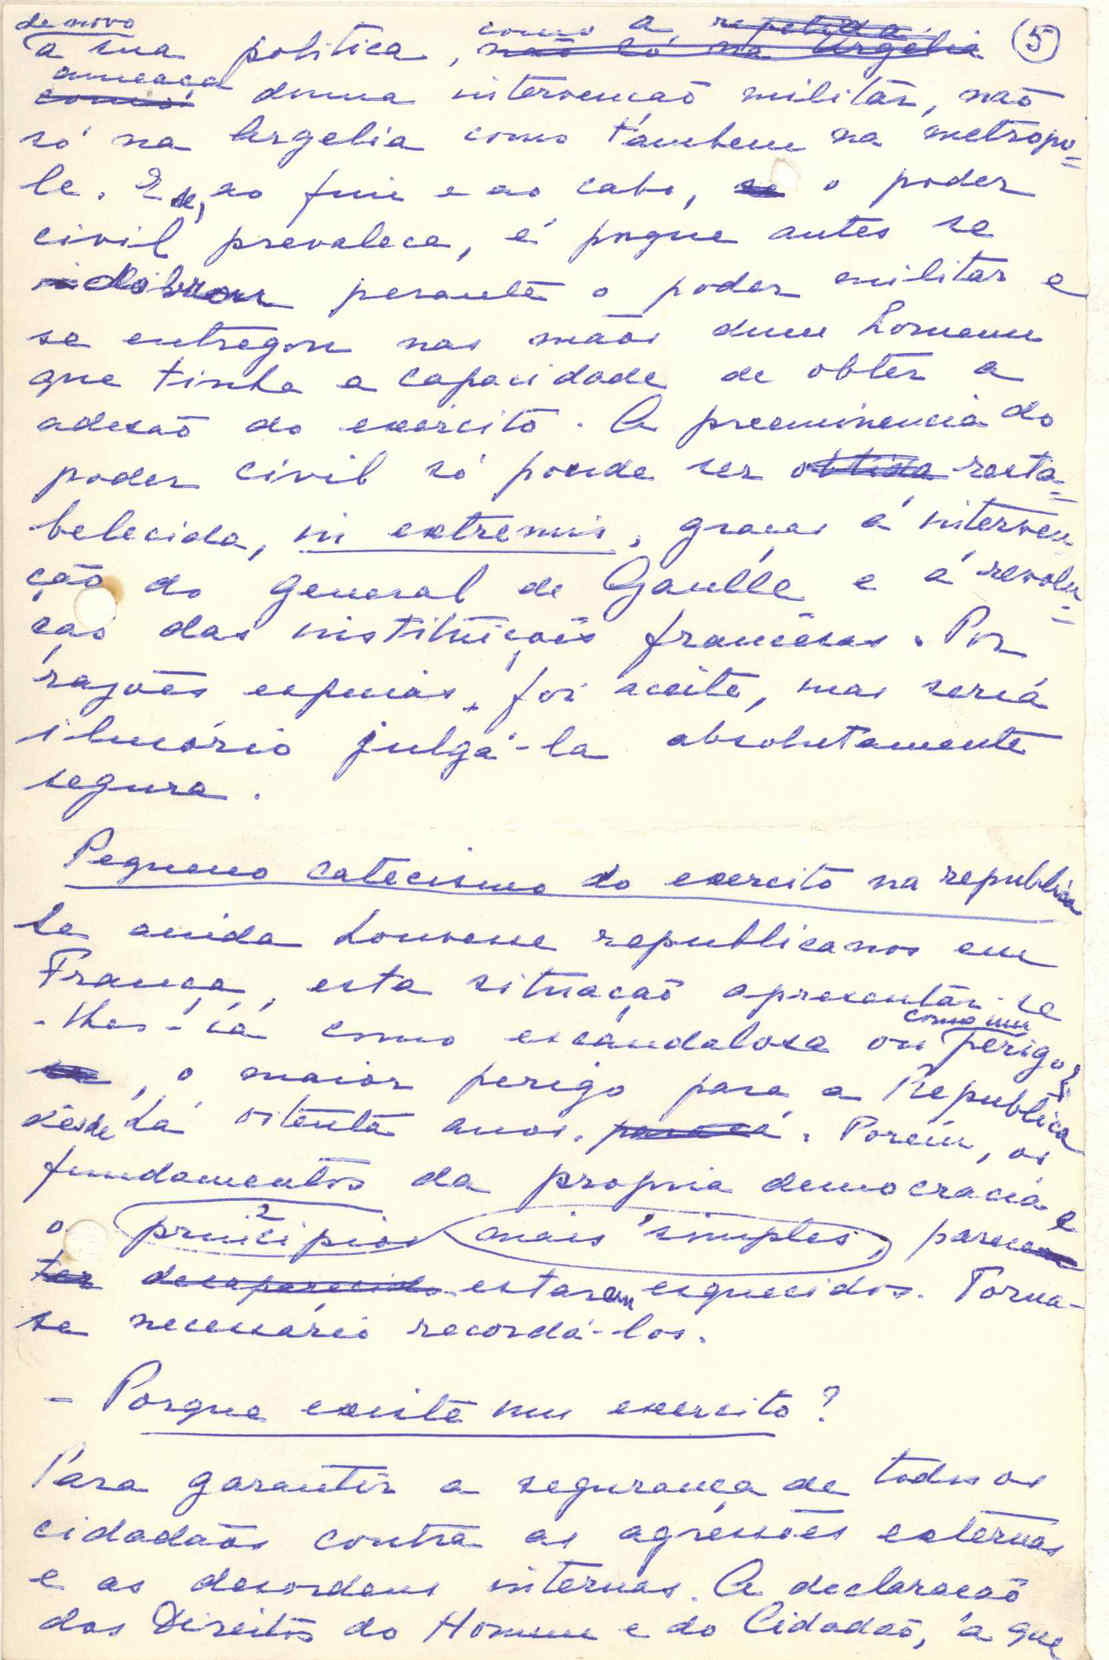 de novo
como a repetida (5)
a sua política, não só na Argélia
ameaça
como duma intervenção militar, não
só na Argelia como tambem na metropo=
le. E se, ao fim e ao cabo, se o poder
civil prevalece, é porque antes se
dobrou perante o poder militar e
se entregou nas mãos dum homem
que tinha a capacidade de obter a
adesão do exercito. A preeminencia do
poder civil só poude ser obtida resta=
belecida, in extremis, graças á interven
ção do general de Gaulle e á revolu=
ção das instituições francesas. Por
razões especiais, foi aceite, mas seria
ilusório julgá-la absolutamente
segura.
Pequeno catecismo do exercito na republica
Se ainda houvesse republicanos em
França, esta situação apresentar-se
-lhes-ia como escandalosa ou perigo,
como um
o maior perigo para a República
desde há oitenta anos. para cá. Porém, os
fundamentos da propria democracia e
os principios mais simples, parecem
2
ter desaparecido estarem esquecidos. Torna-
se necessário recordá-los.
- Porque existe um exercito?
Para garantir a segurança de todos os
cidadãos contra as agressões externas
e as desordens internas. A declaração
dos Direitos do Homem e do Cidadão, a que